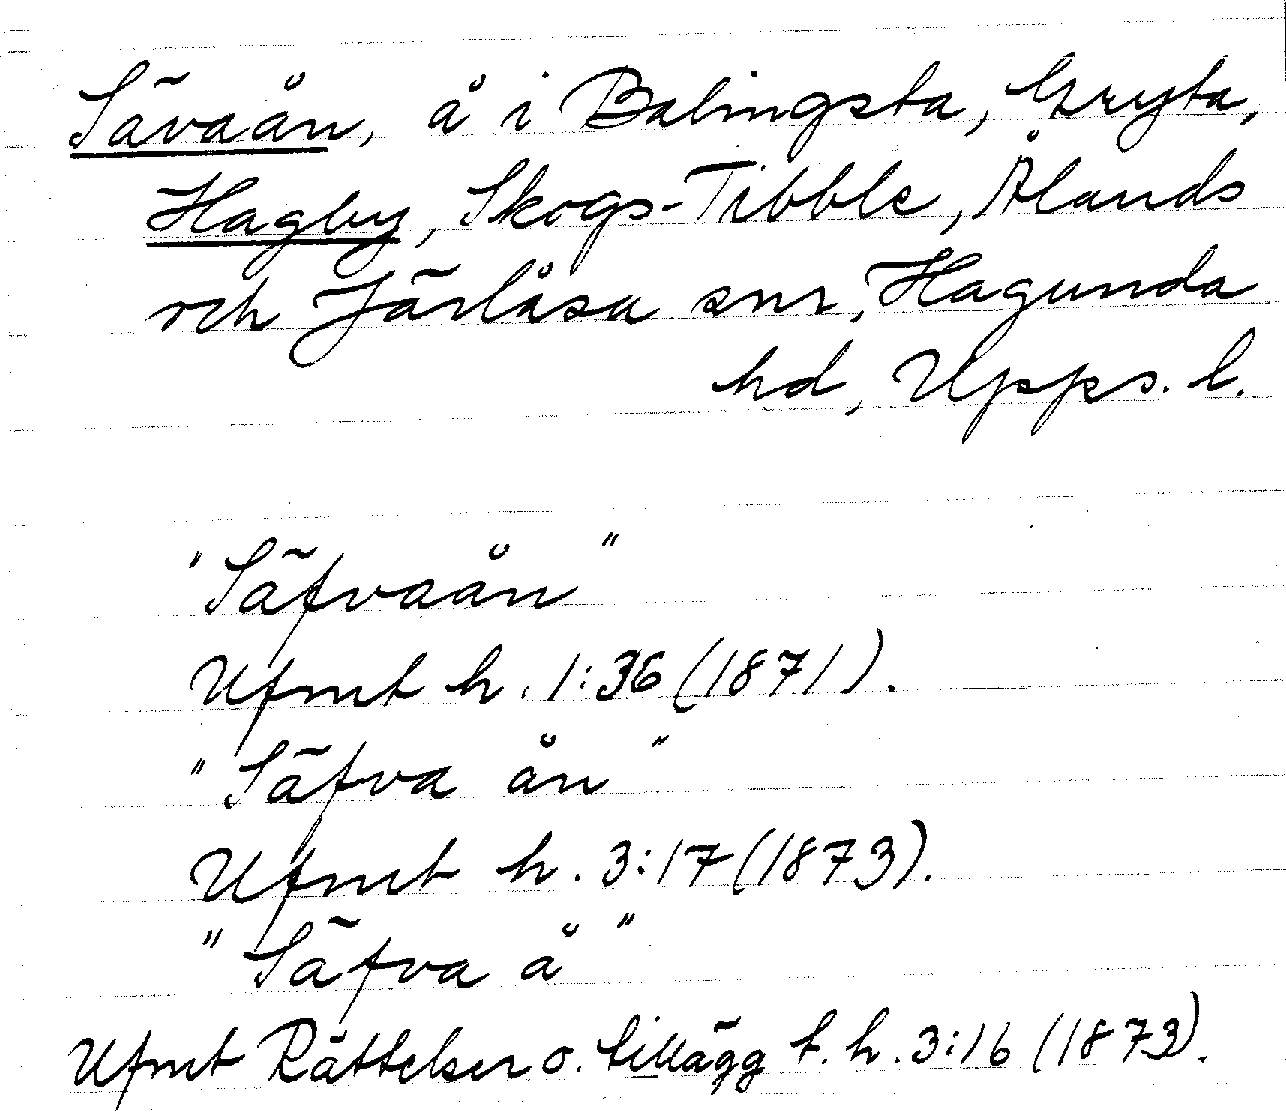 Sävaån, å i Balingsta, Gryta,
Hagby, Skogs-Tibble, Ålands
och Järlåsa snr, Hagunda
hd, Upps. l.
"Säfvaån"
Ufmt h. 1:36 (1871).
"Säfva ån"
Ufmt h. 3:17 (1873).
"Säfva å"
Ufmt Rättelser o. tillägg t. h. 3:16 (1873).